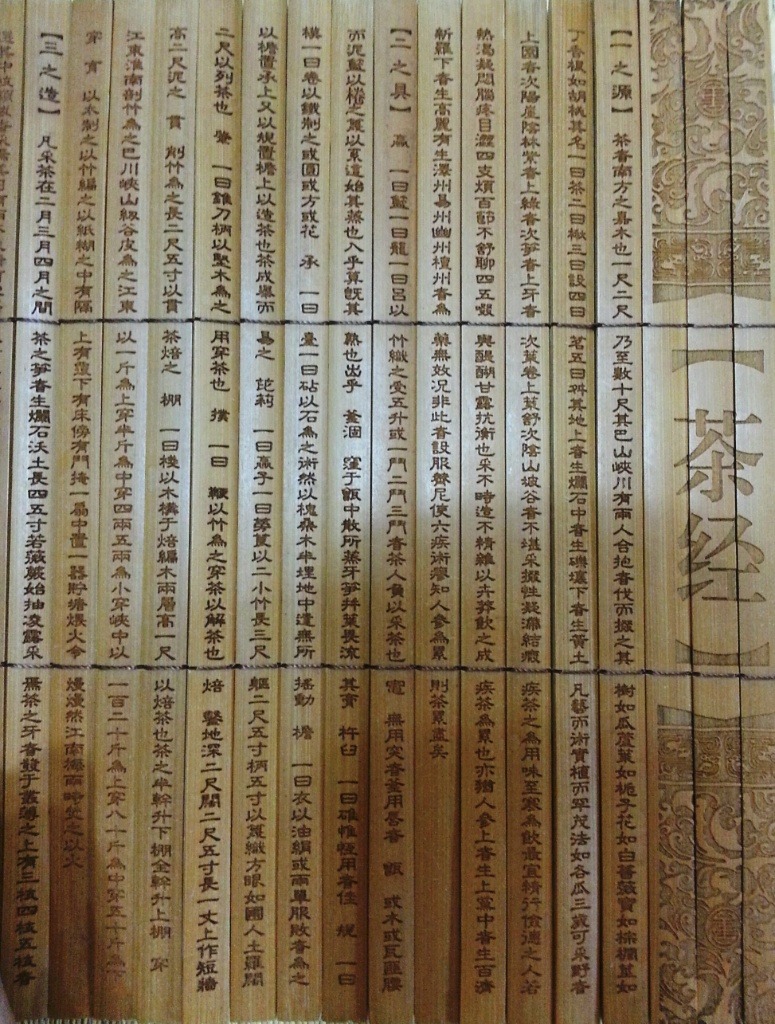 【茶经】
【一之源】 茶者南方之嘉木也一尺二尺乃至數十尺其巴山峽川有兩人合抱者伐而掇之其樹如瓜蘆葉如梔子花如白薔薇實如栟櫚莖如
丁香根如胡桃其名一曰茶二曰檟三曰蔎四曰茗五曰荈其地上者生爛石中者生礫壤下者生黃土凡藝而術實植而罕茂法如各瓜三歲可采野者
上園者次陽崖陰林紫者上綠者次笋者上牙者次葉卷上葉舒次陰山坡谷者不堪采掇性凝滯結瘕疾茶之為用味至寒為飲最宜精行儉德之人若
熱渴凝悶腦疼目澀四支煩百節不舒聊四五啜與醍醐甘露抗衡也采不時造不精雜以卉莽飲之成疾茶為累也亦猶人參上者生上黨中者生百濟
新羅下者生高麗有生澤州易州幽州檀州者為藥無效況非此者設服薺苨使六疾術瘳知人參為累則茶累盡矣
【二之具】 籯 一曰籃一曰籠一曰筥以竹織之受五升或一鬥二鬥三鬥者茶人負以采茶也 竈 無用突者釜用唇者 甑 或木或瓦匪腰
而泥籃以棬之篾以系遠始其蒸也入乎箅既其熟也出乎 釜涸 窪于甑中散所蒸牙笋拌葉畏流其膏 杵臼 一曰碓惟恆用者佳 規 一曰
模一曰棬以鐵制之或圓或方或花 承 一曰臺一曰砧以石為之術然以槐桑木半埋地中遣無所搖動 檐 一曰衣以油絹或雨單服敗者為之
以檐置承上又以規置檐上以造茶也茶成舉而易之 芘莉 一曰蠃子一曰篣筤以二小竹長三尺軀二尺五寸柄五寸以篾織方眼如圃人土羅闊
二尺以列茶也 棨 一曰錐刀柄以堅木為之用穿茶也 撲 一曰 鞭以竹為之穿茶以解茶也 焙 鑿地深二尺闊二尺五寸長一丈上作短牆
高二尺泥之 貫 削竹為之長二尺五寸以貫茶焙之 棚 一曰棧以木構于焙編木兩層高一尺以焙茶也茶之半幹升下棚全幹升上棚 穿
江東淮南剖竹為之巴川峽山紉谷皮為之江東以一斤為上穿半斤為中穿四兩五兩為小穿峽中以一百二十斤為上穿八十斤為中穿五十斤為小
穿 育 以木制之以竹編之以紙糊之中有隔上有覆下有床傍有門掩一扇中置一器貯塘煨火令熅熅然江南梅雨時焚之以火
【三之造】 凡采茶在二月三月四月之間茶之笋者生爛石沃土長四五寸若薇蕨始抽凌露采焉茶之牙者發于叢薄之上有三枝四枝五枝者